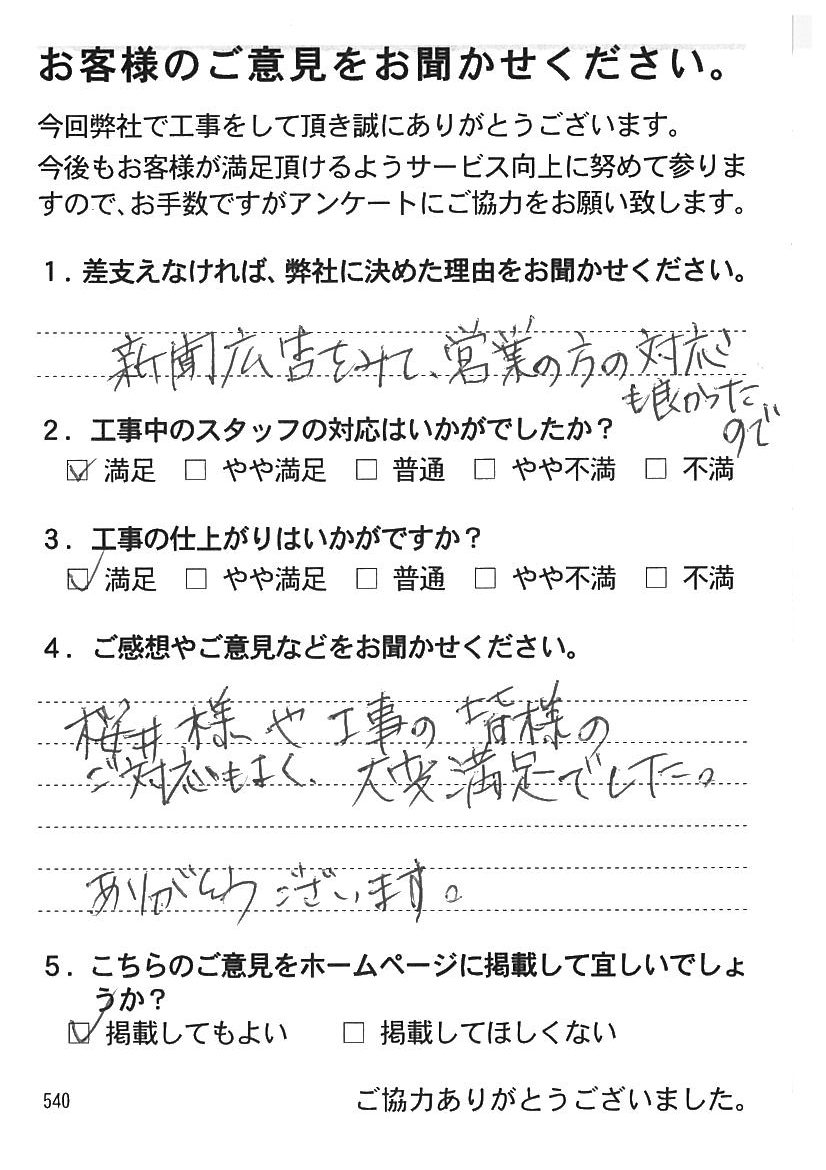 お客様のご意見をお聞かせください。
今回弊社で工事をして頂き誠にありがとうございます。
今後もお客様が満足頂けるようサービス向上に努めて参りま
すので、お手数ですがアンケートにご協力をお願い致します。
１．差支えなければ、弊社に決めた理由をお聞かせください。
新聞広告をみて、営業の方の対応
も良かった
ので
２．工事中のスタッフの対応はいかがでしたか？
☑ 満足 □ やや満足 □ 普通 □ やや不満 □ 不満
３．工事の仕上がりはいかがですか？
☑ 満足 □ やや満足 □ 普通 □ やや不満 □ 不満
４．ご感想やご意見などをお聞かせください。
桜井様や工事の皆様の
ご対応もよく、大変満足でした。
ありがとうございます。
５．こちらのご意見をホームページに掲載して宜しいでしょ
うか？
☑ 掲載してもよい □ 掲載してほしくない
540 ご協力ありがとうございました。